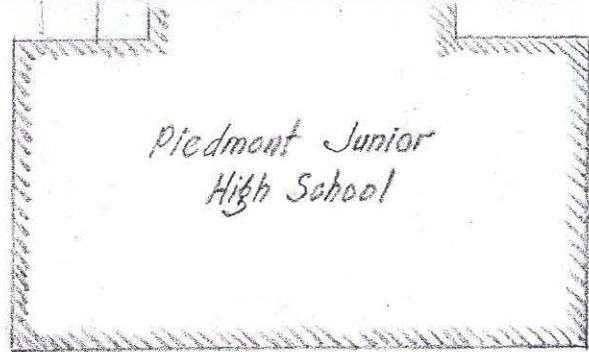 Piedmont Junior
High School